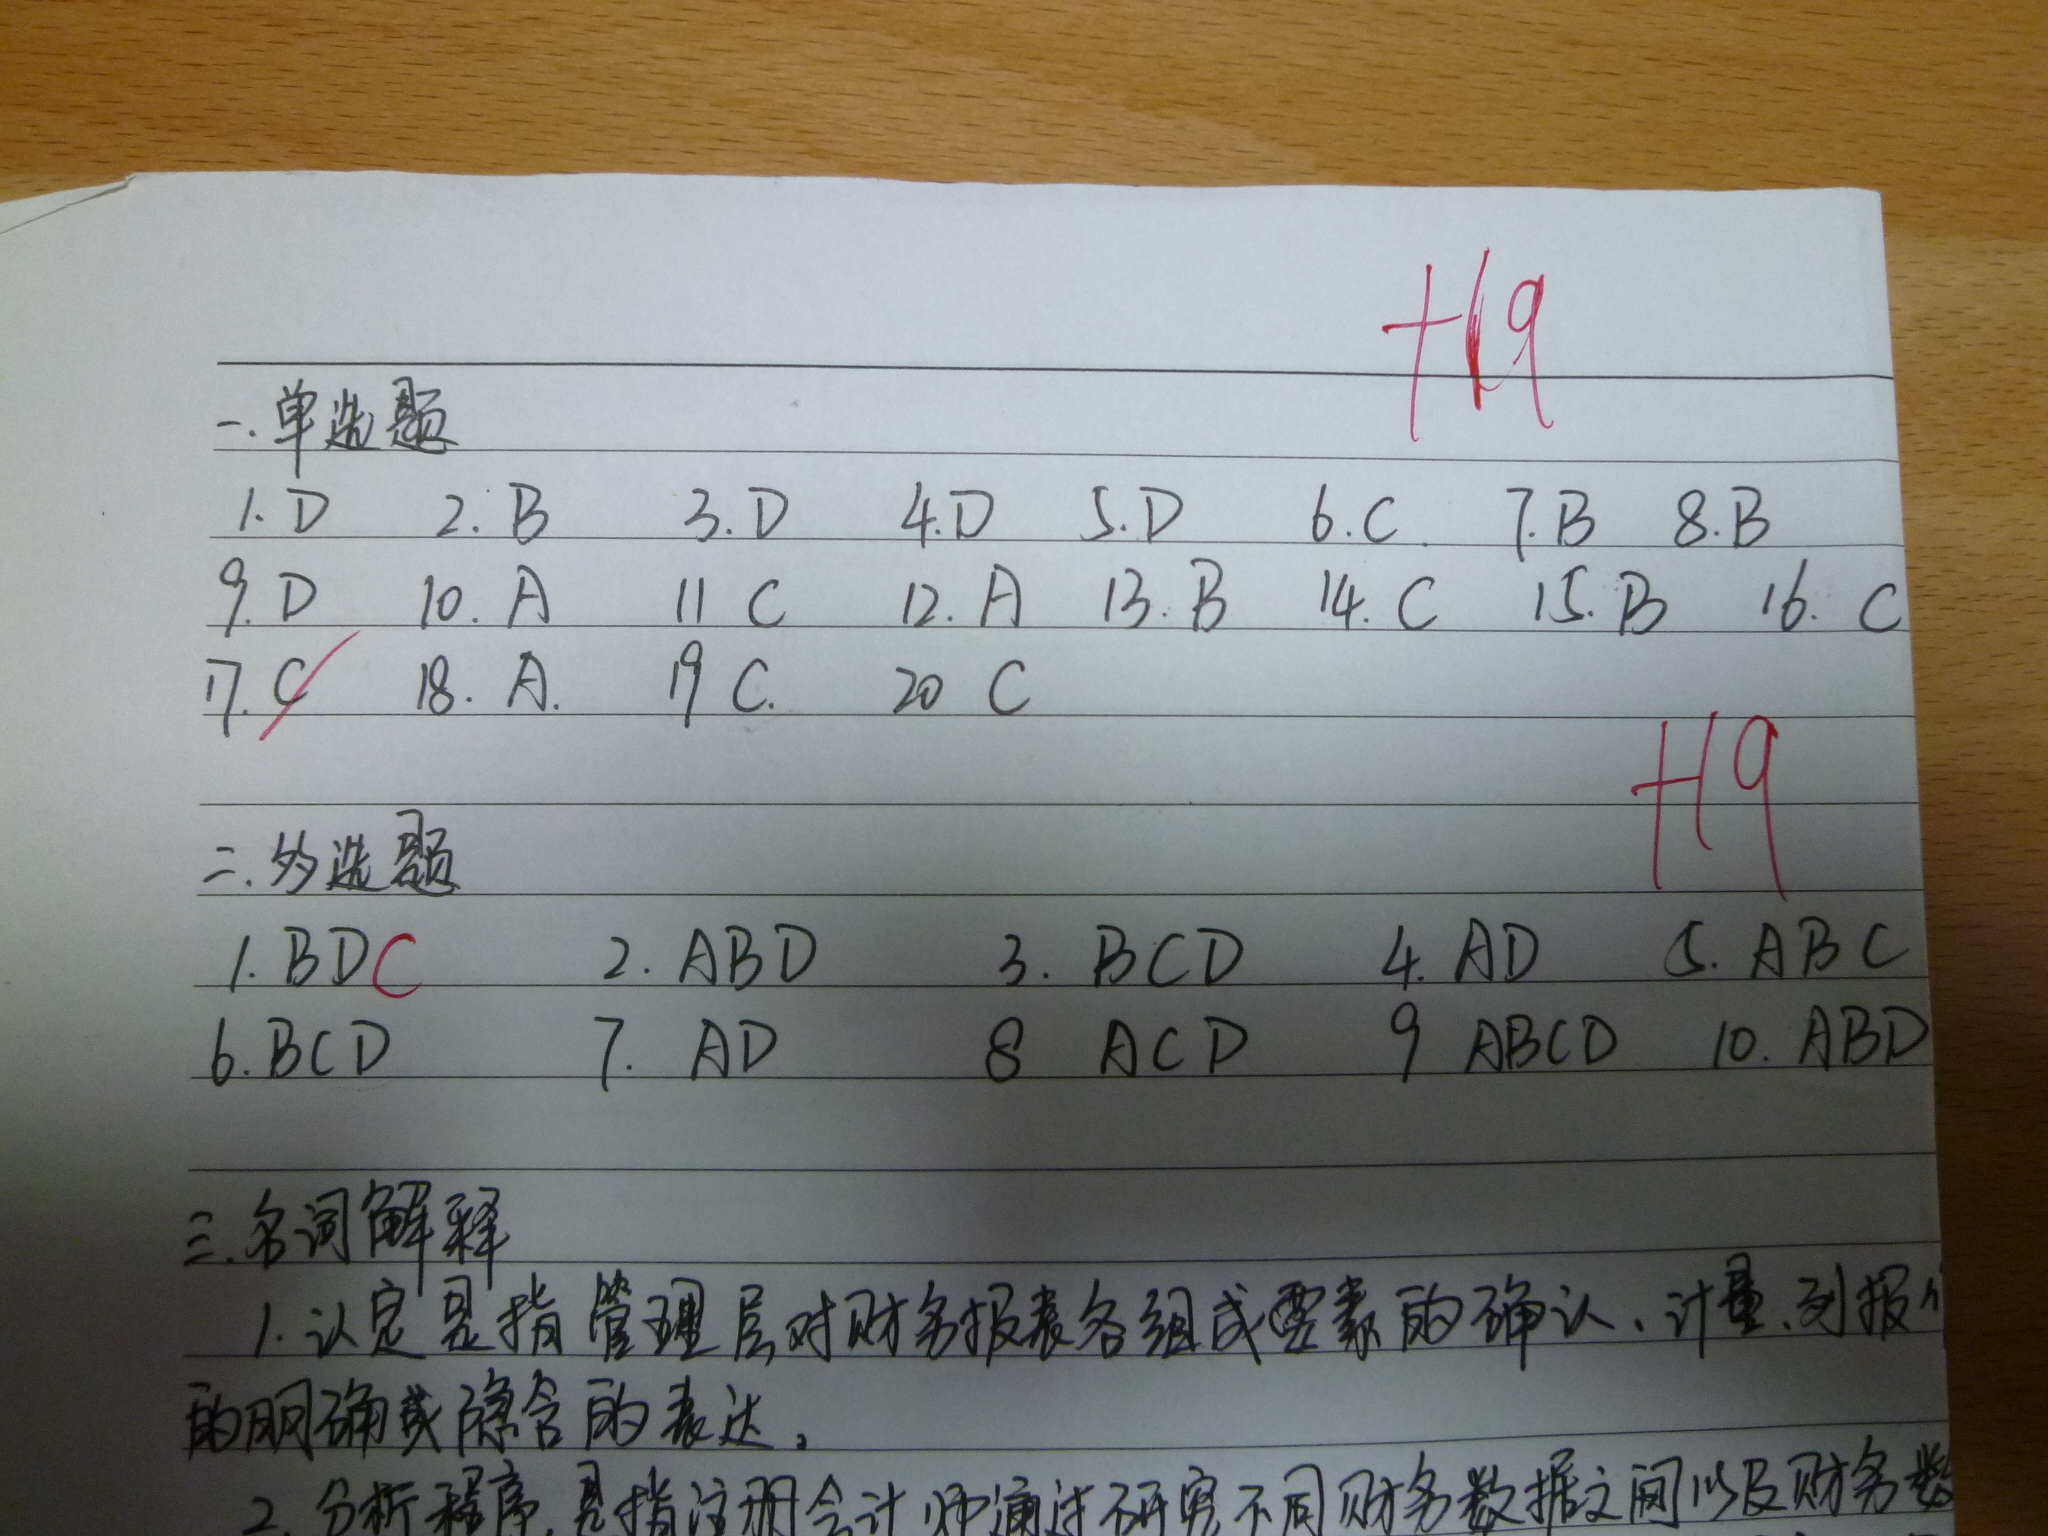 +19
一.单选题
1.D 2.B 3.D 4.D 5.D 6.C 7.B 8.B
9.D 10.A 11 C 12.A 13.B 14.C 15.B 16.C
17.C 18.A. 19 C. 20 C
+19
二.多选题
1.BDC 2.ABD 3.BCD 4.AD 5.ABC
6.BCD 7.AD 8 ACD 9 ABCD 10.ABD
三.名词解释
1.认定是指管理层对财务报表各组成要素的确认、计量、列报
的明确或隐含的表达。
2.分析程序,是指注册会计师通过研究不同财务数据之间以及财务数